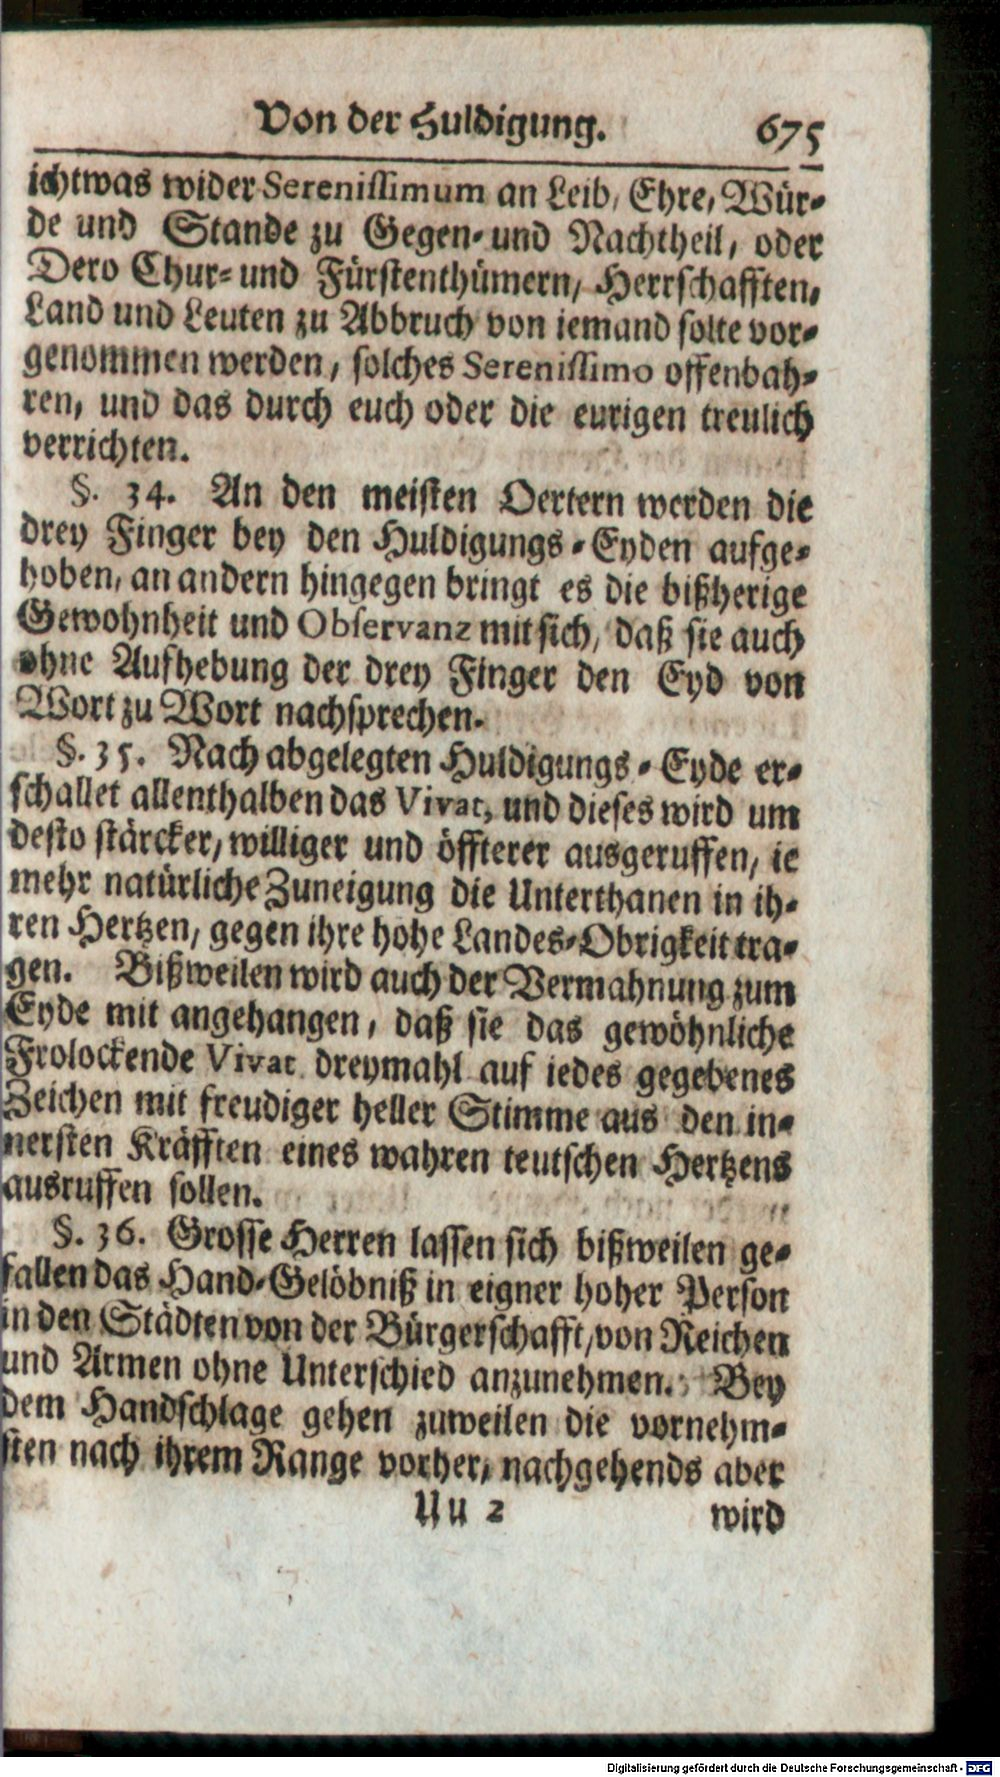 Von der Huldigung. 675
ichtwas wider Serenissimum an Leib, Ehre, Wür-
de und Stande zu Gegen- und Nachtheil, oder
Dero Chur- und Fürstenthümern, Herrschafften,
Land und Leuten zu Abbruch von iemand solte vor-
genommen werden, solches Serenissimo offenbah-
ren, und das durch euch oder die eurigen treulich
verrichten.
§. 34. An den meisten Oertern werden die
drey Finger bey den Huldigungs-Eyden aufge-
hoben, an andern hingegen bringt es die bißherige
Gewohnheit und Observanz mit sich, daß sie auch
ohne Aufhebung der drey Finger den Eyd von
Wort zu Wort nachsprechen.
§. 35. Nach abgelegten Huldigungs-Eyde er-
schallet allenthalben das Vivat, und dieses wird um
desto stärcker, williger und öffterer ausgeruffen, ie
mehr natürliche Zuneigung die Unterthanen in ih-
ren Hertzen, gegen ihre hohe Landes-Obrigkeit tra-
gen. Bißweilen wird auch der Vermahnung zum
Eyde mit angehangen, daß sie das gewöhnliche
Frolockende Vivat dreymahl auf iedes gegebenes
Zeichen mit freudiger heller Stimme aus den in-
nersten Kräfften eines wahren teutschen Hertzens
ausruffen sollen.
§. 36. Grosse Herren lassen sich bißweilen ge-
fallen das Hand-Gelöbniß in eigner hoher Person
in den Städten von der Bürgerschafft, von Reichen
und Armen ohne Unterschied anzunehmen. Bey
dem Handschlage gehen zuweilen die vornehm-
sten nach ihrem Range vorher, nachgehends aber
Uu 2 wird
Digitalisierung gefördert durch die Deutsche Forschungsgemeinschaft - DFG